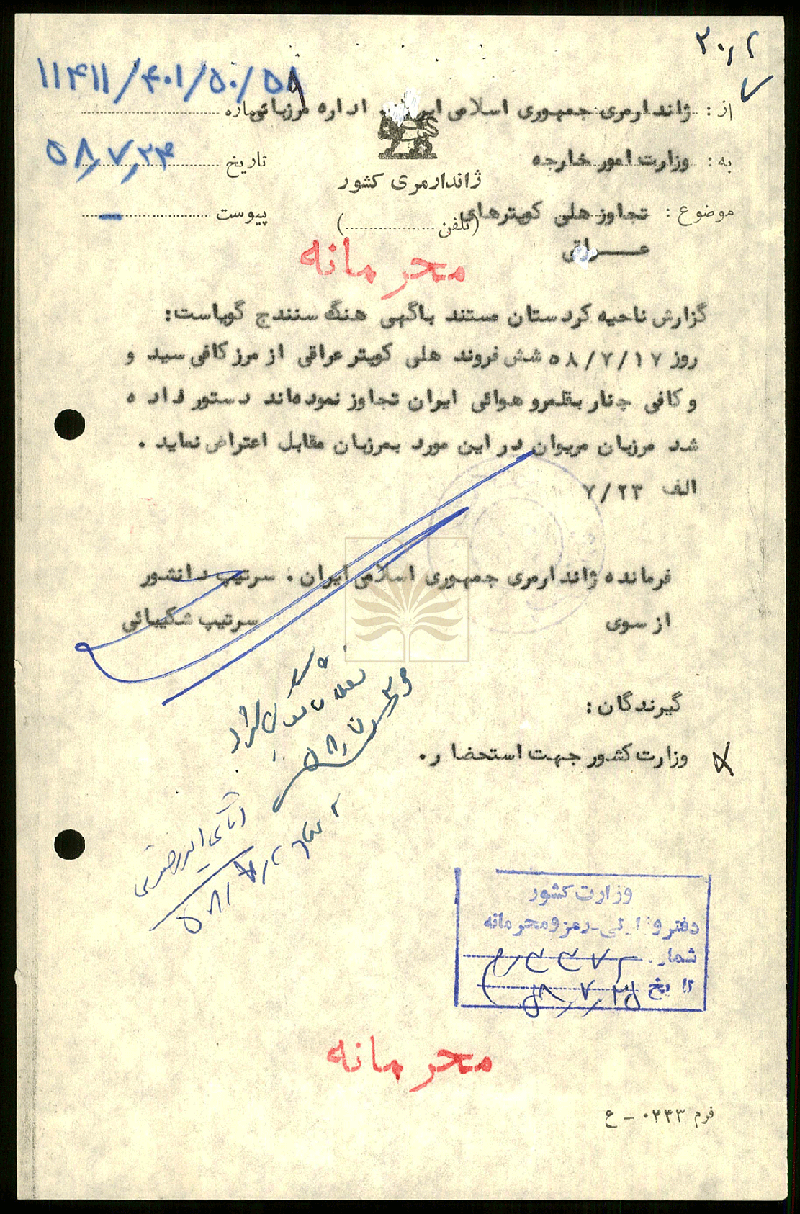 ۳۰٫۲
۱۱۴۱۱/۴۰۱/۵۰/۵۸
از : ژاندارمری جمهوری اسلامی ایران. اداره مرزبانی
شماره
به : وزارت امور خارجه
تاریخ ۵۸٫۷٫۲۴
ژاندارمری کشور
موضوع : تجاوز هلی کوپترهای
(تلفن ..................)
پیوست –
عراقی
محرمانه
گزارش ناحیه کردستان مستند باگهی هنگ سنندج گویاست:
روز ۵۸/۷/۱۷ شش فروند هلی کوپتر عراقی از مرز کافی سید و
و کافی چنار بقلمرو هوائی ایران تجاوز نموده‌اند دستور داده
شد مرزبان مریوان در این مورد بمرزبان مقابل اعتراض نماید .
الف ۷/۲۳
فرمانده ژاندارمری جمهوری اسلامی ایران . سرتیپ دانشور
از سوی سرتیپ شکیبائی
گیرندگان :
وزارت کشور جهت استحضار.
وزارت کشور
دفتر وزارتی-رمز و محرمانه
شماره
تاریخ ۵۸٫۷٫۲۵
محرمانه
فرم ۰۲۴۳ – ع